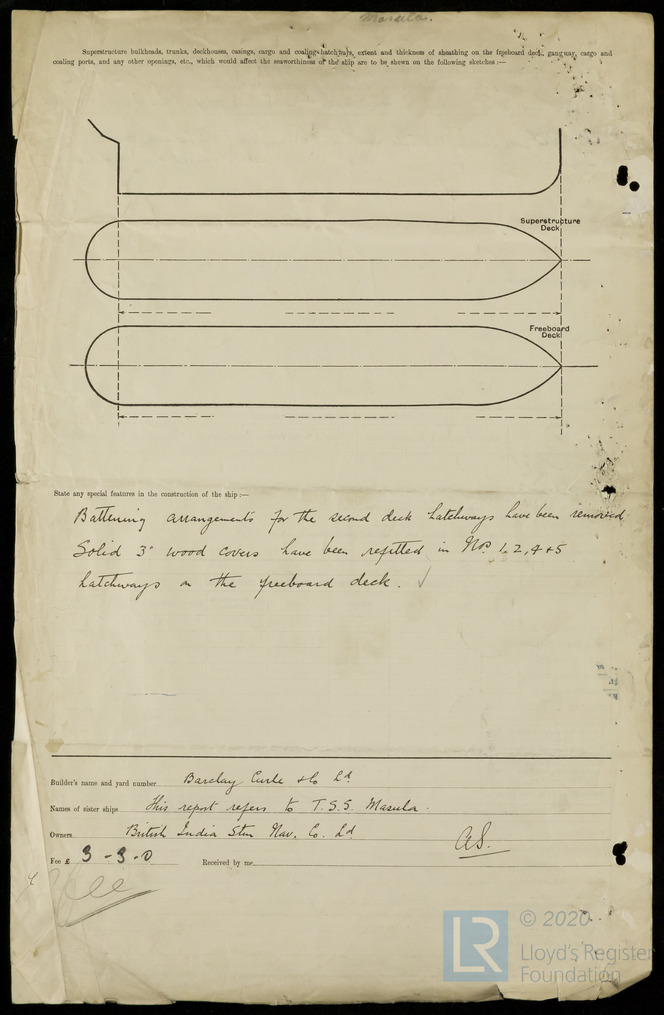 Masula.
Superstructure bulkheads, trunks, deckhouses, casings, cargo and coaling hatchways, extent and thickness of sheathing on the freeboard deck, gangway, cargo and
coaling ports, and any other openings, etc., which would affect the seaworthiness of the ship are to be shewn on the following sketches :—
Superstructure
Deck
Freeboard
Deck
State any special features in the construction of the ship :—
Battening arrangements for the second deck hatchways have been removed
Solid 3" wood covers have been refitted in Nos. 1, 2, 4 & 5
hatchways on the freeboard deck. ✓
Builder's name and yard number Barclay Curle & Co Ld
Names of sister ships This report refers to T.S.S. Masula.
Owners British India Stm Nav. Co. Ld
Fee £ 3 - 3 - 0 Received by me
© 2020
LR Lloyd's Register
Foundation